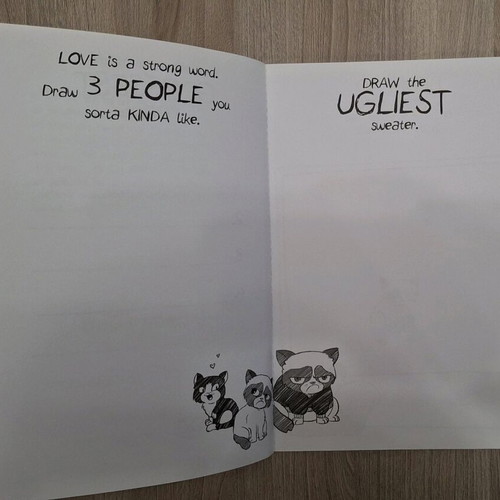 LOVE is a strong word.
Draw 3 PEOPLE you
sorta KINDA like.
DRAW the
UGLIEST
sweater.